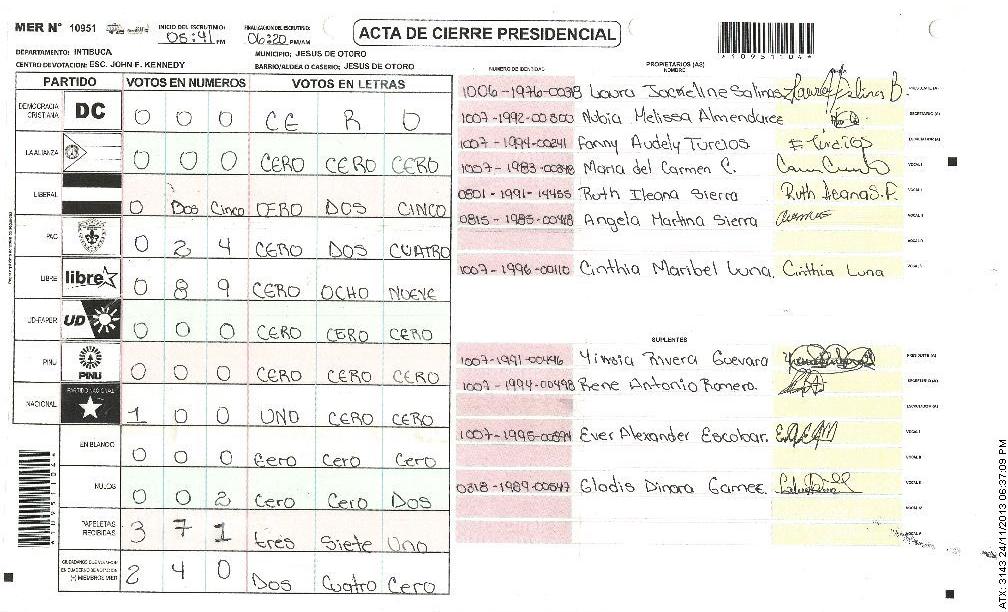 MER N° 10951 INICIO DEL ESCRUTINIO: 05:41 PM FINALIZACION DEL ESCRUTINIO: 06:20 PM/AM
ACTA DE CIERRE PRESIDENCIAL
*10951104*
DEPARTAMENTO: INTIBUCA MUNICIPIO: JESUS DE OTORO
CENTRO DE VOTACION: ESC. JOHN F. KENNEDY BARRIO/ALDEA O CASERIO: JESUS DE OTORO
PARTIDO VOTOS EN NUMEROS VOTOS EN LETRAS
DEMOCRACIA CRISTIANA DC 0 0 0 CE R O
LA ALIANZA 0 0 0 CERO CERO CERO
LIBERAL 0 Dos Cinco CERO DOS CINCO
PAC 0 2 4 CERO DOS CUATRO
LIBRE libre 0 8 9 CERO OCHO NUEVE
UD-FAPER UD 0 0 0 CERO CERO CERO
PINU PINU 0 0 0 CERO CERO CERO
NACIONAL PARTIDO NACIONAL 1 0 0 UNO CERO CERO
EN BLANCO 0 0 0 Cero Cero Cero
NULOS 0 0 2 Cero Cero Dos
PAPELETAS RECIBIDAS 3 7 1 tres Siete Uno
2 4 0 Dos Cuatro Cero
(+) MIEMBROS MER
NUMERO DE IDENTIDAD PROPIETARIOS (AS)
NOMBRE
1006-1976-00318 Laura Jacqueline Salinas
1007-1992-00300 Nubia Melissa Almendarez
1007-1994-00241 Fanny Audely Turcios F Turcios
1007-1983-00348 Maria del Carmen C.
0801-1991-14455 Ruth Ileana Sierra Ruth Ileana S.
0815-1985-00468 Angela Martina Sierra
1007-1996-00110 Cinthia Maribel Luna. Cinthia Luna
SUPLENTES
1007-1991-00446 Rivera Guevara
1007-1994-00498 Rene Antonio Romero.
1007-1995-00594 Ever Alexander Escobar.
0318-1989-00547 Glodis Dinora Gamez.
*10951104*
ATX: 3143 24/11/2013 06:37:09 PM